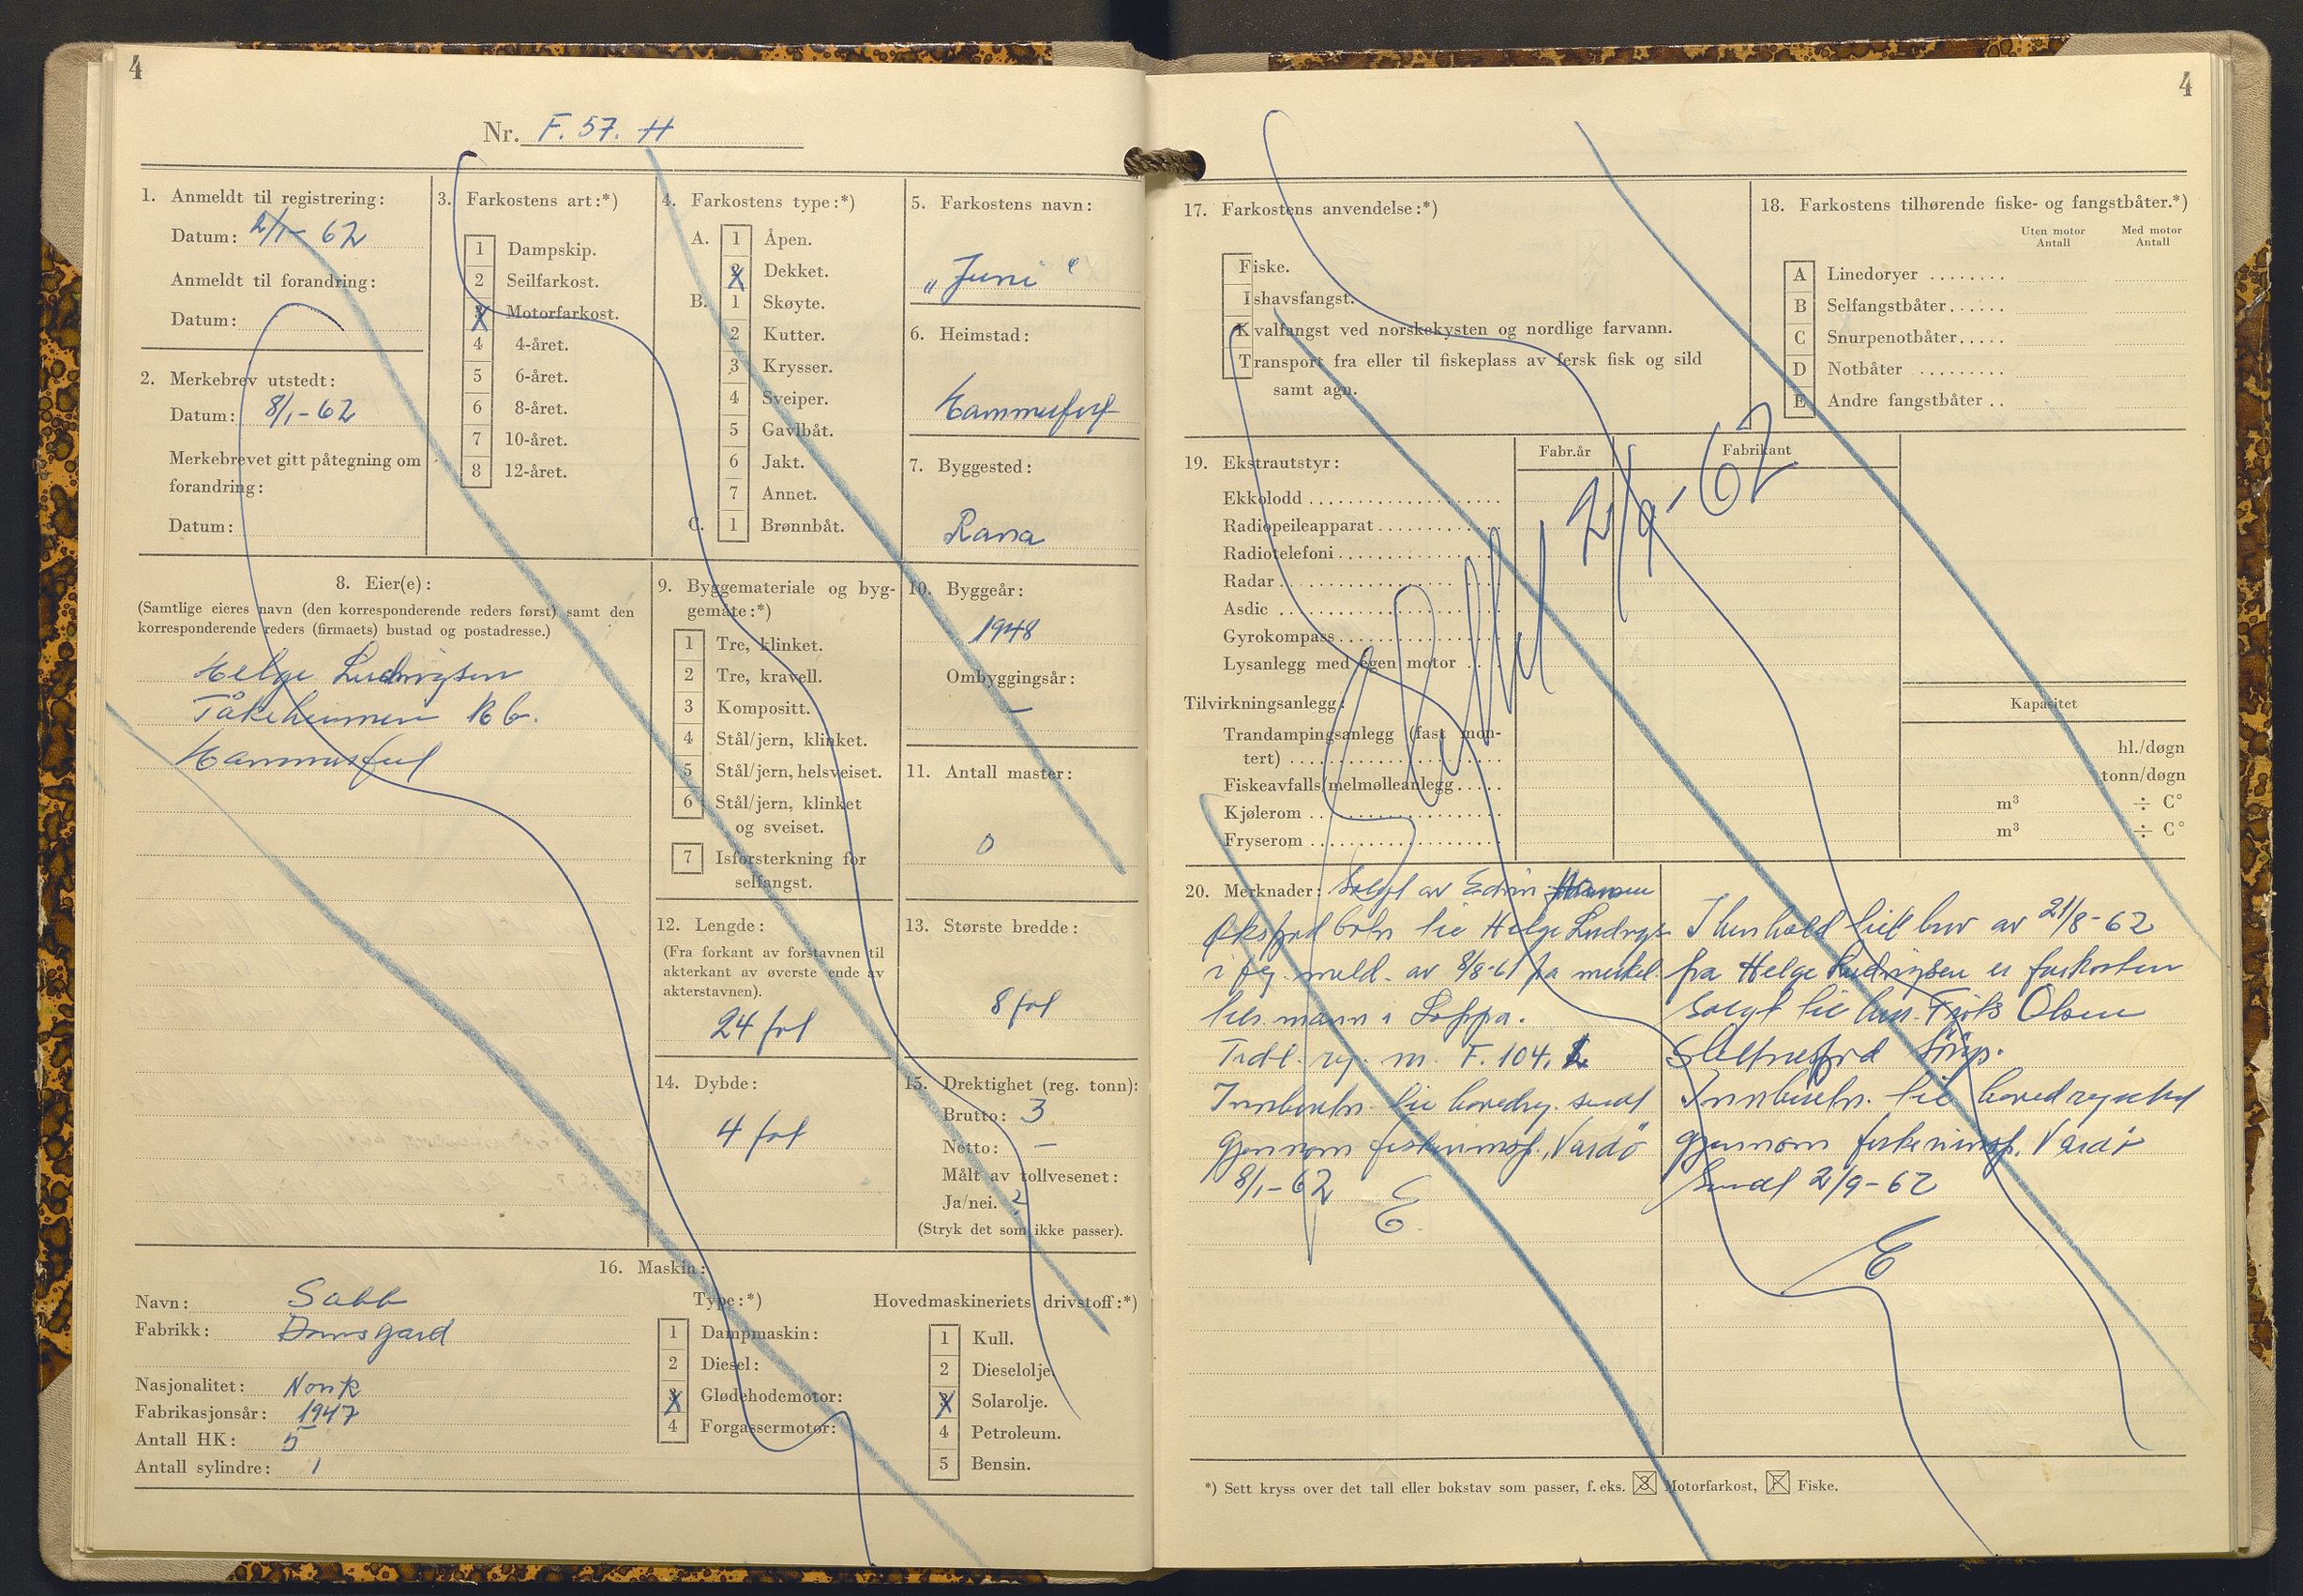 4
Nr. F. 57. H
1. Anmeldt til registrering:
Datum: 2/1 - 62
Anmeldt til forandring:
Datum:
2. Merkebrev utstedt:
Datum: 8/1 - 62
Merkebrevet gitt påtegning om
forandring:
Datum:
3. Farkostens art:*)
1 Dampskip.
2 Seilfarkost.
3 Motorfarkost.
4 4-året.
5 6-året.
6 8-året.
7 10-året.
8 12-året.
4. Farkostens type:*)
A. 1 Åpen.
2 Dekket.
B. 1 Skøyte.
2 Kutter.
3 Krysser.
4 Sveiper.
5 Gavlbåt.
6 Jakt.
7 Annet.
C. 1 Brønnbåt.
5. Farkostens navn:
„Juni“
6. Heimstad:
Hammerfest
7. Byggested:
Rana
8. Eier(e):
(Samtlige eieres navn (den korresponderende reders først) samt den
korresponderende reders (firmaets) bustad og postadresse.)
Helge Ludvigsen
Tåkeheimen 16 b.
Hammerfest
9. Byggemateriale og byg-
gemåte:*)
1 Tre, klinket.
2 Tre, kravell.
3 Kompositt.
4 Stål/jern, klinket.
5 Stål/jern, helsveiset.
6 Stål/jern, klinket
og sveiset.
7 Isforsterkning for
selfangst.
10. Byggeår:
1948
Ombyggingsår:
—
11. Antall master:
0
12. Lengde:
(Fra forkant av forstavnen til
akterkant av øverste ende av
akterstavnen).
24 fot
13. Største bredde:
8 fot
14. Dybde:
4 fot
15. Drektighet (reg. tonn):
Brutto: 3
Netto: —
Målt av tollvesenet:
Ja/nei. ?
(Stryk det som ikke passer).
16. Maskin:
Navn: Sabb
Fabrikk: Damsgard
Nasjonalitet: Norsk
Fabrikasjonsår: 1947
Antall HK: 5
Antall sylindre: 1
Type:*)
1 Dampmaskin:
2 Diesel:
3 Glødehodemotor:
4 Forgassermotor:
Hovedmaskineriets drivstoff:*)
1 Kull.
2 Dieselolje.
3 Solarolje.
4 Petroleum.
5 Bensin.
4
17. Farkostens anvendelse:*)
Fiske.
Ishavsfangst.
Kvalfangst ved norskekysten og nordlige farvann.
Transport fra eller til fiskeplass av fersk fisk og sild
samt agn.
18. Farkostens tilhørende fiske- og fangstbåter.*)
Uten motor Antall
Med motor Antall
A Linedoryer
B Selfangstbåter
C Snurpenotbåter
D Notbåter
E Andre fangstbåter
19. Ekstrautstyr:
Fabr.år
Fabrikant
Ekkolodd
Radiopeileapparat
Radiotelefoni
Radar
Asdic
Gyrokompass
Lysanlegg med egen motor
Tilvirkningsanlegg:
Trandampingsanlegg (fast mon-
tert)
Fiskeavfalls/melmølleanlegg
Kjølerom
Fryserom
Kapasitet
hl./døgn
tonn/døgn
m³ ÷ C°
m³ ÷ C°
2/9 - 62
20. Merknader: Solgt av Edvin Hansen
Øksfjord til Helge Ludvigs
i flg. meld. av 8/8-61 fra merkel.
tils. mann i Loppa.
Tidl. reg. m. F. 104. L
Innberetn. til hovedreg. sendt
gjennom fiskeriinsp., Vardø
8/1 - 62
E
I henhold til brev av 21/8 - 62
fra Helge Ludvigsen er farkosten
solgt til Olsen
Innberetn. til hovedregistret
gjennom fiskeriinsp. Vardø
sendt 2/9 - 62
E
*) Sett kryss over det tall eller bokstav som passer, f. eks. 3 Motorfarkost, F Fiske.